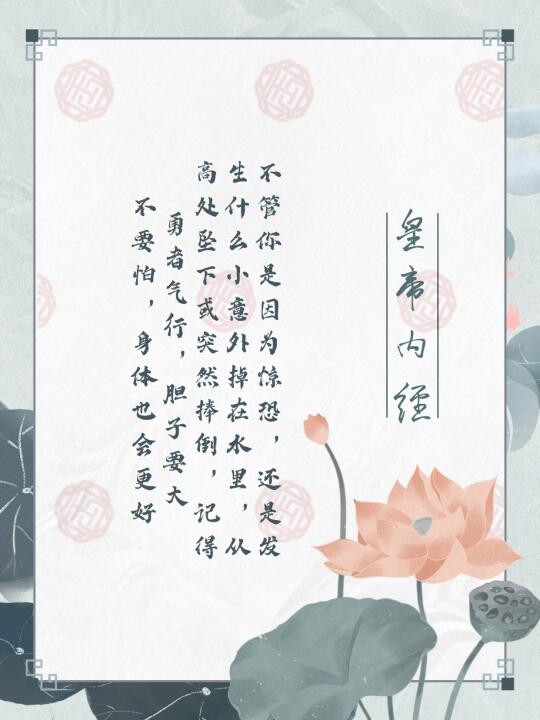 皇帝内经
不管你是因为惊恐，还是发
生什么小意外掉在水里，从
高处坠下或突然捧倒，记得
勇者气行，胆子要大
不要怕，身体也会更好